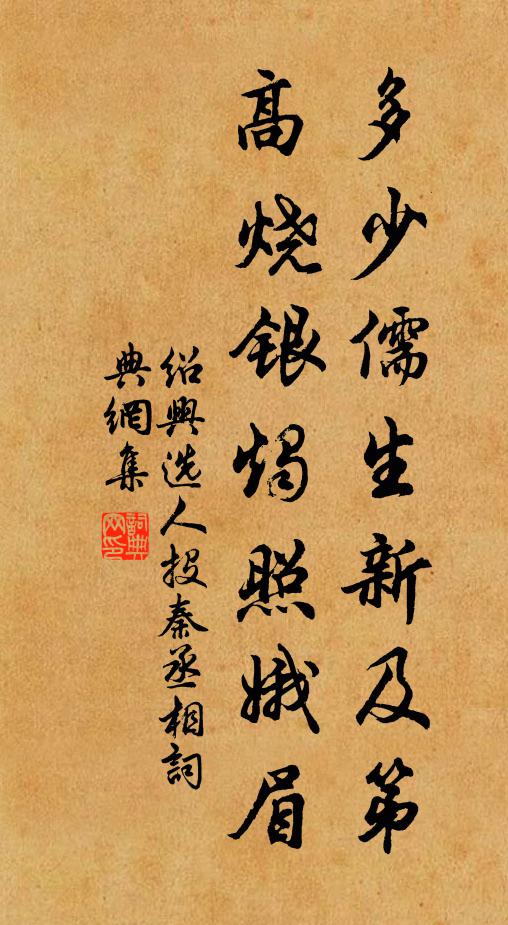 多少儒生新及第
高烧银烛照娥眉
绍興选人投秦丞相詞
典網集
詞典网印